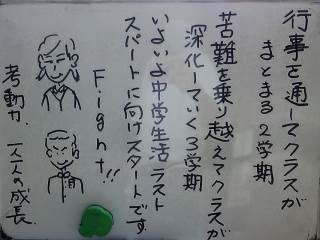 行事を通してクラスが
まとまる2学期
苦難を乗り越えてクラスが
深化していく3学期
いよいよ中学生活ラスト
スパートに向けスタートです
Fight!!
考動力 一人一人の成長